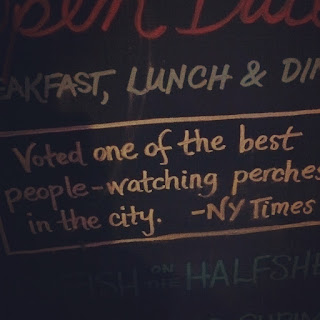 Open Dai
EAKFAST, LUNCH & DIN
Voted one of the best
people-watching perches
in the city. -NY Times
ISH ON THE HALFSHE